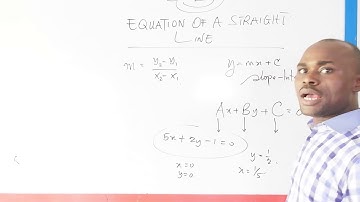 EQUATION OF A STRAIGHT
LINE
m = y₂ - y₁ / x₂ - x₁
y = mx + c
slope-Int
Ax + By + C = 0
5x + 2y - 1 = 0
x = 0
y = 0
y = 1/2
x = 1/5